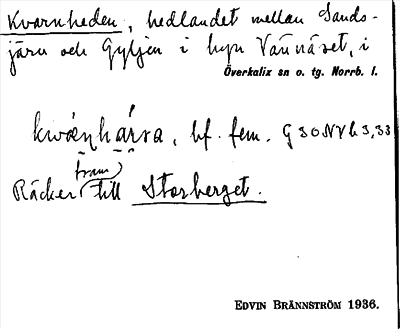 Kvarnheden, hedlandet mellan Sands-
järn och Gyljen i byn Vännäset, i
Överkalix sn o. tg. Norrb. l.
kwänhárva, bf. fem. G30NVh3,33
fram
Räcker till Storberget.
EDVIN BRÄNNSTRÖM 1936.